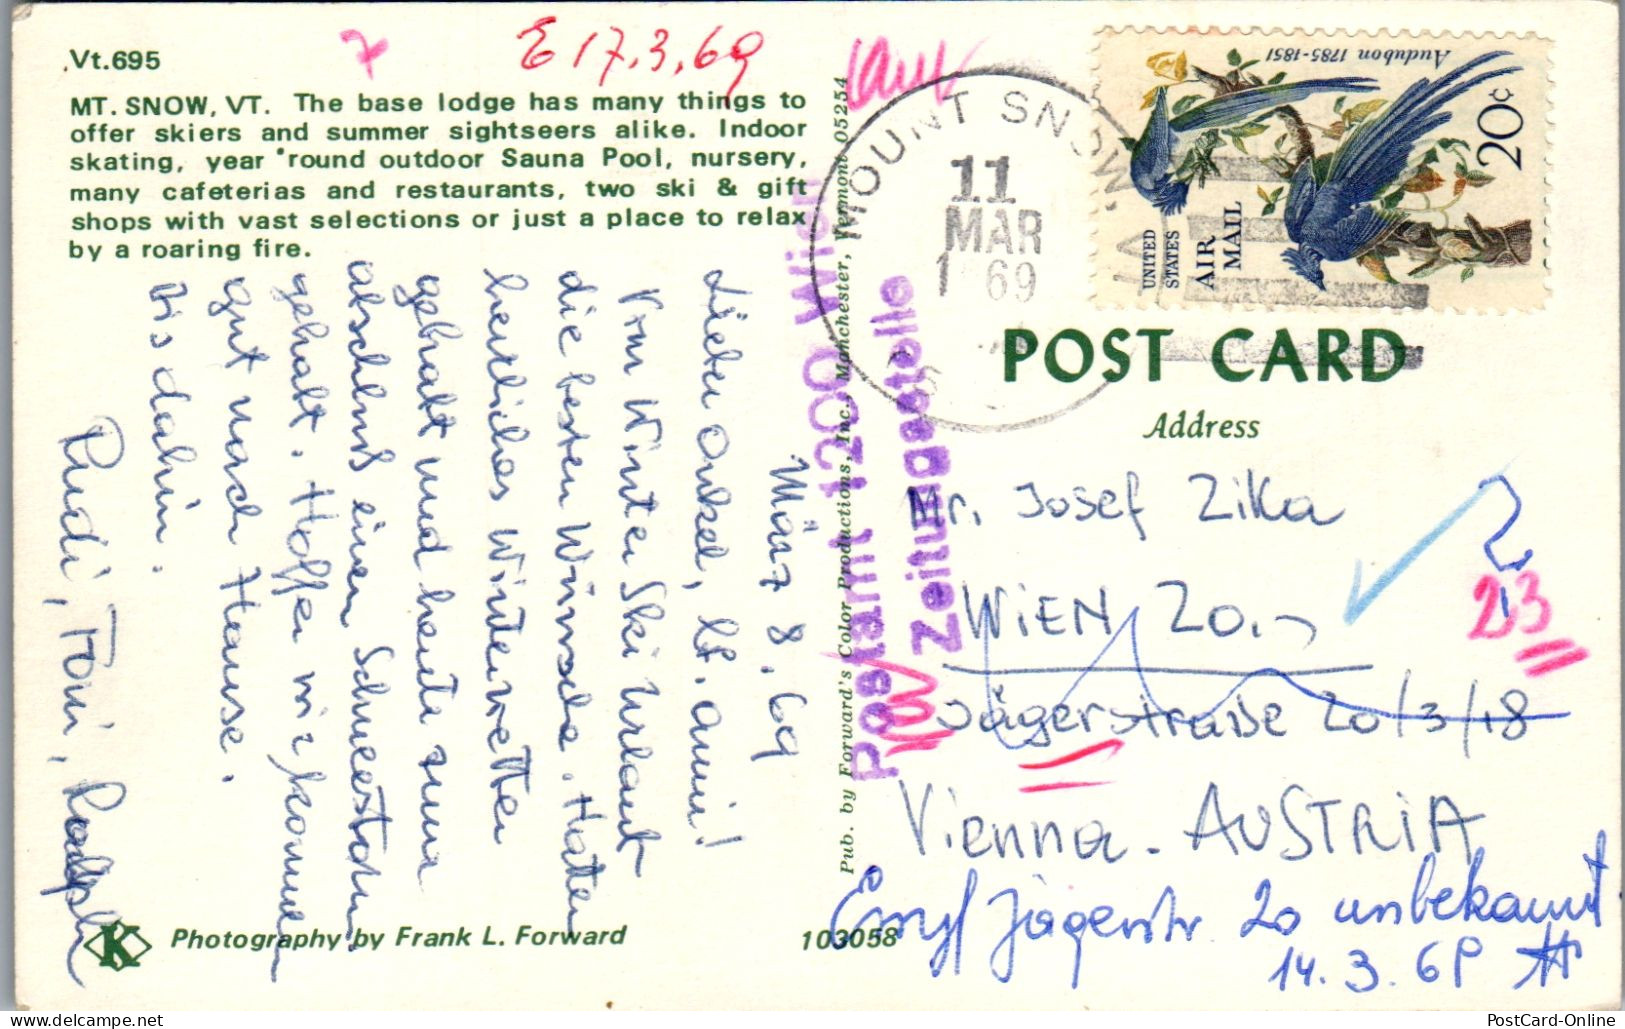 Vt.695
7
E 17.3.69
MT. SNOW, VT. The base lodge has many things to
offer skiers and summer sightseers alike. Indoor
skating, year 'round outdoor Sauna Pool, nursery,
many cafeterias and restaurants, two ski & gift
shops with vast selections or just a place to relax
by a roaring fire.
März 8. 69
Lieber Onkel, lb. Anni!
Vom Winter Ski Urlaub
die besten Wünsche. Hatten
herrliches Winterwetter
gehabt und heute zum
abschluß einen Schneesturm
gehabt. Hoffen wir kommen
gut nach Hause.
bis dahin.
Rudi, Toni,
K
Photography by Frank L. Forward
103058
Pub. by Forward's Color Productions, Inc., Manchester, Vermont 05254
Postamt 1200 Wien
Zeitungsstelle
MOUNT SNOW, VT
11
MAR
1969
Audubon 1785-1851
20c
UNITED
STATES
AIR
MAIL
POST CARD
Address
Mr. Josef Zika
WIEN 20.
23
Jägerstraße 20/3/18
Vienna. AUSTRIA
Jägerstr 20 unbekannt
14.3.69
PostCard-Online